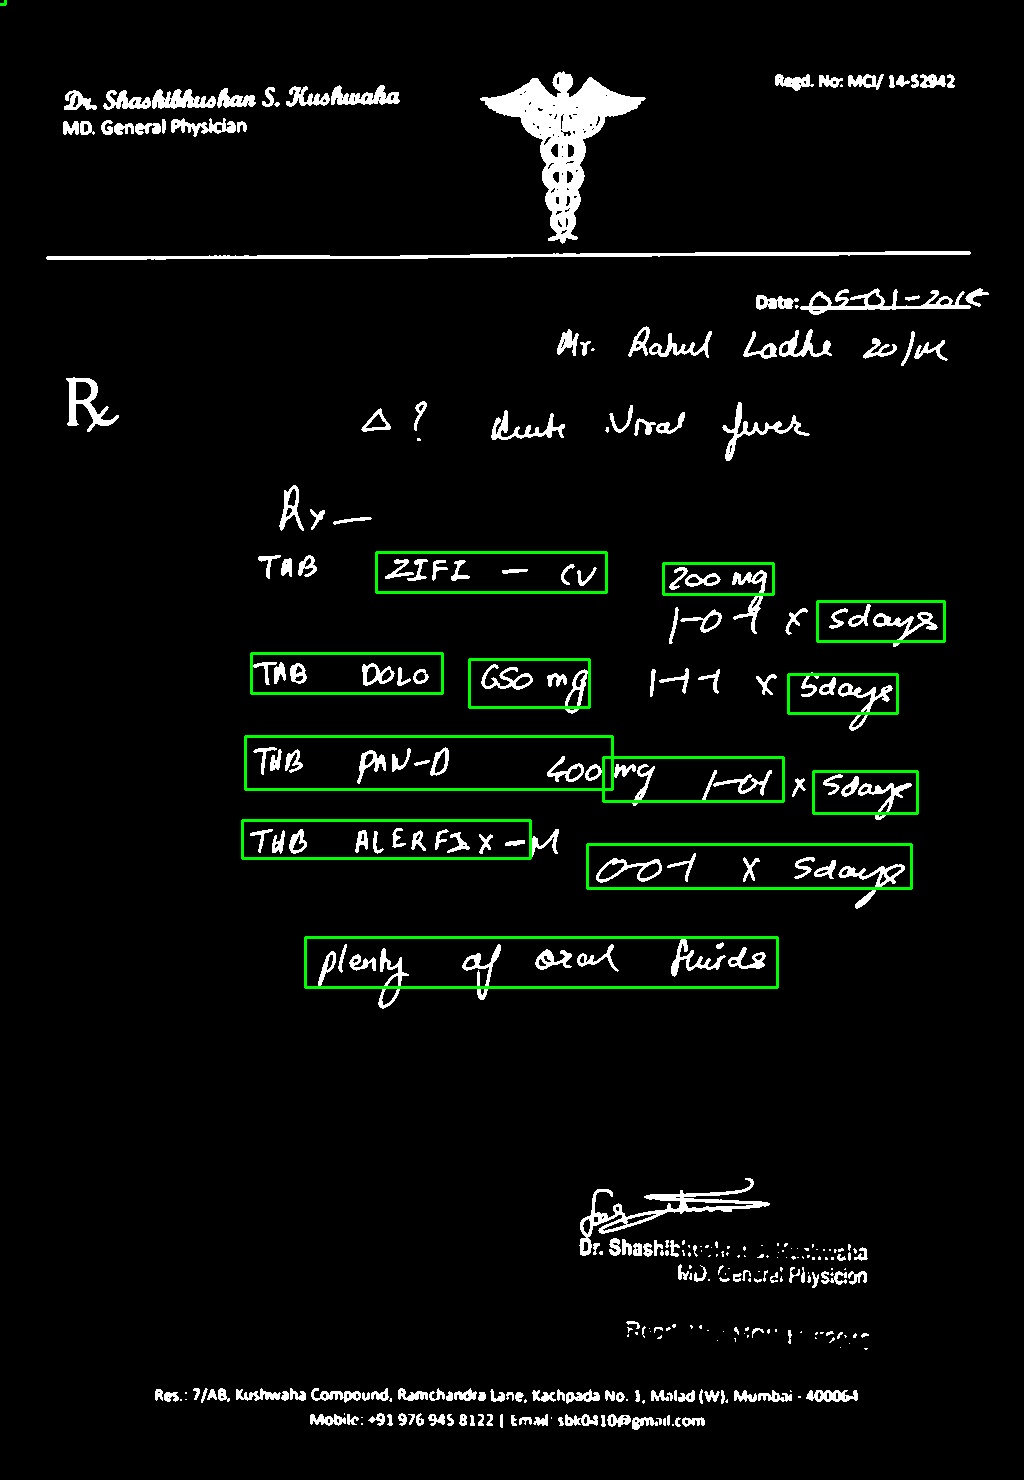 Dr. Shashibhushan S. Kushwaha
Regd. No: MCI/ 14-52942
MD. General Physician
Date: 05-01-2015
Mr. Rahul Ladhe 20/M
Rx
Δ ? Acute Viral fever
Rx —
TAB ZIFI - CV 200 mg
1-0-1 x 5days
TAB DOLO 650 mg 1-1-1 x 5days
TAB PAN-D 400 mg 1-0-1 x 5days
TAB ALERFIX - M
0-0-1 x 5days
plenty of oral fluids
Dr. Shashibhushan S. Kushwaha
MD. General Physician
Res.: 7/AB, Kushwaha Compound, Ramchandra Lane, Kachpada No. 1, Malad (W), Mumbai - 400064
Mobile: +91 976 945 8122 | Email: sbk0410@gmail.com